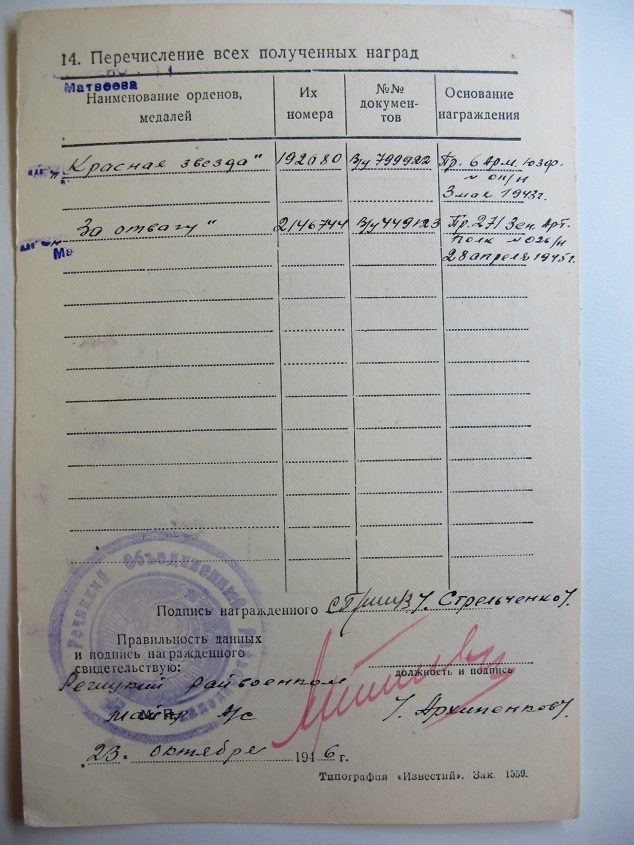 14. Перечисление всех полученных наград
Матвеева
Наименование орденов, медалей
Их номера
№№ докумен-тов
Основание награждения
„Красная звезда" 192080 В/у 799922 Пр. 6 Арм. Юзф.
№ 011/н
3 мая 1943г.
„За отвагу" 2146744 В/у 449123 Пр. 271 Зен. Арт.
Полк № 026/н
28 апреля 1945г.
Ма
Речицкий Объединенный
Подпись награжденного /Стрельченко/.
Правильность данных
и подпись награжденного
свидетельствую:
должность и подпись
Речицкий райвоенком
майор а/с /Архипенков/.
23. октября 1946 г.
Типография «Известий». Зак. 1559.